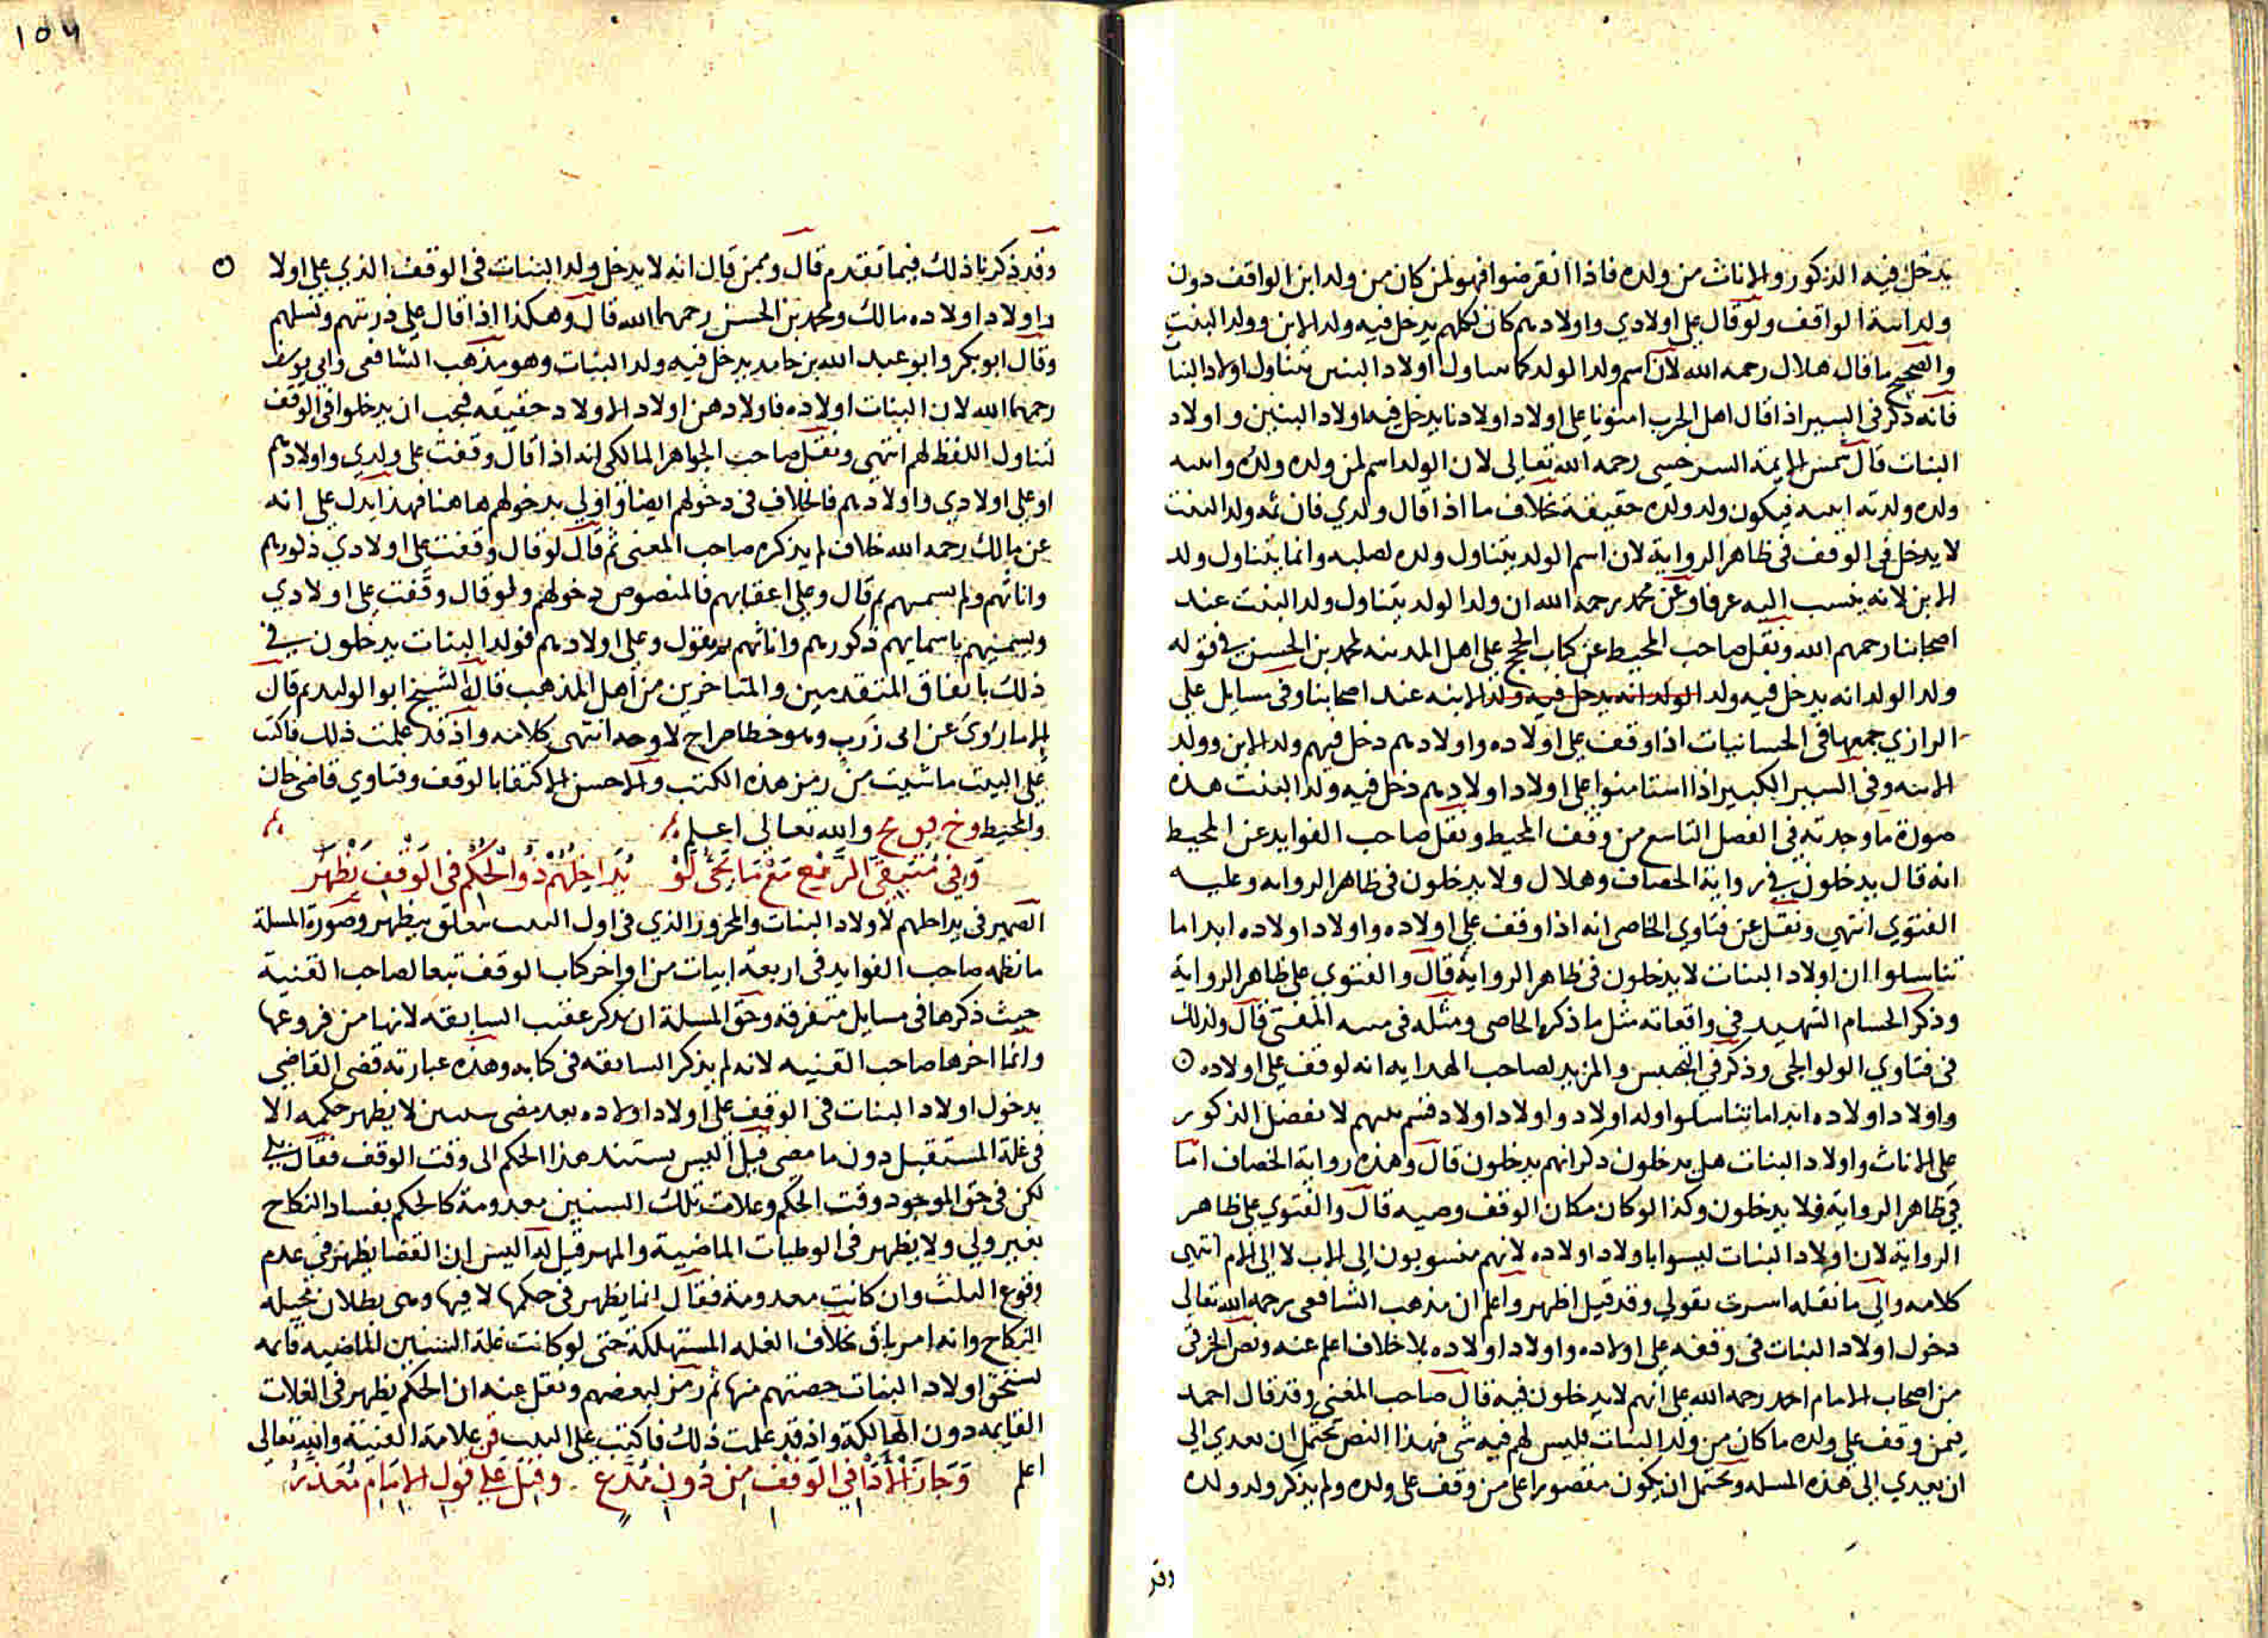 يدخل فيه الذكور والاناث من ولده فاذا انقرضوا فهو لمن كان من ولد ابن الواقف دون
ولد ابنة الواقف ولو قال على اولادي واولادهم كان لكلهم يدخل فيه ولد الابن وولد البنت
والصحيح ما قال هلال رحمه الله لان اسم ولد الولد كما يتناول اولاد البنين يتناول اولاد البنا
فانه ذكر في السير اذا قال اهل الحرب امنونا على اولاد اولادنا يدخل فيه اولاد البنين واولاد
البنات قال شمس الايمة السرخسي رحمه الله تعالى لان الولد اسم لمن ولده ولده وابنته
ولده ولدته ابنته فيكون ولد ولده حقيقة بخلاف ما اذا قال ولدي فان ثمه ولد البنت
لا يدخل في الوقف في ظاهر الرواية لان اسم الولد يتناول ولده لصلبه وانما يتناول ولد
الابن لانه ينسب اليه عرفا وعن محمد رحمه الله ان ولد الولد يتناول ولد البنت عند
اصحابنا رحمهم الله ونقل صاحب المحيط عن كتاب الحجج على اهل المدينه لمحمد بن الحسن في قوله
ولد الولد انه يدخل فيه ولد الولد انه يدخل فيه ولد الابنه عند اصحابنا وفي مسايل علي
الرازي جمعها في الحسانيات اذا وقف على اولاده واولادهم دخل فيهم ولد الابن وولد
الابنه وفي السير الكبير اذا استامنوا على اولاد اولادهم دخل فيه ولد البنت هذه
صورة ما وجدته في الفصل التاسع من وقف المحيط ونقل صاحب الفوايد عن المحيط
انه قال يدخلون في رواية الخصاف وهلال ولا يدخلون في ظاهر الروايه وعليه
الفتوي انتهى ونقل عن فتاوي الخاصى انه اذا وقف على اولاده واولاد اولاده ابدا ما
تناسلوا ان اولاد البنات لا يدخلون في ظاهر الرواية قال والفتوى على ظاهر الرواية
وذكر الحسام الشهيد في واقعاته مثل ما ذكر الخاصى ومثله في منيه المفتى قال ولذلك
في فتاوي الولوالجى وذكر في التجنيس والمزيد لصاحب الهدايه انه لو وقف على اولاده
واولاد اولاده ابدا ما تناسلوا وله اولاد واولاد اولاد قسم بينهم لا يفضل الذكور
على الاناث واولاد البنات هل يدخلون ذكر انهم يدخلون قال وهذه رواية الخصاف اما
في ظاهر الرواية فلا يدخلون وكذا لو كان مكان الوقف وصيه قال والفتوي على ظاهر
الرواية لان اولاد البنات ليسوا باولاد اولاده لانهم منسوبون الى الاب لا الى الام انتهى
كلامه والى ما نقله اشرت بقولي وقد قيل اظهر واعلم ان مذهب الشافعى رحمه الله تعالى
دخول اولاد البنات في وقفه على اولاده واولاد اولاده بلا خلاف اعلم عنه ونص الخرقى
من اصحاب الامام احمد رحمه الله على انهم لا يدخلون فيه قال صاحب المغنى وقد قال احمد
فيمن وقف على ولده ما كان من ولد البنات فليس لهم فيه شى فهذا النص يحتمل ان يعدي الى
ان يعدي الى هذه المسله ويحتمل ان يكون مقصورا على من وقف على ولده ولم يذكر ولد ولده
وقد
١٥٧
وقد ذكرنا ذلك فيما تقدم قال وممن قال انه لا يدخل ولد البنات في الوقف الذي على اولا
د واولاد اولاده مالك ومحمد بن الحسن رحمهما الله قال وهكذا اذا قال على ذريتهم ونسلهم
وقال ابو بكر وابو عبد الله بن حامد يدخل فيه ولد البنات وهو مذهب الشافعى وابي يوسف
رحمهما الله لان البنات اولاده فاولادهن اولاد الاولاد حقيقه فيجب ان يدخلوا في الوقف
لتناول اللفظ لهم انتهى ونقل صاحب الجواهر المالكى انه اذا قال وقفت على ولدي واولادهم
او على اولادي واولادهم فالخلاف في دخولهم ايضا واولى بدخولهم هاهنا فهذا يدل على انه
عن مالك رحمه الله خلاف لم يذكره صاحب المغنى ثم قال لو قال وقفت على اولادي ذكورهم
واناثهم ولم يسميهم ثم قال وعلى اعقابهم فالمنصوص دخولهم ولو قال وقفت على اولادي
ويسميهم باسمايهم ذكورهم واناثهم ثم يقول وعلى اولادهم فولد البنات يدخلون في
ذلك باتفاق المتقدمين والمتاخرين من اهل المذهب قال الشيخ ابو الوليد ثم قال
الا ما روي عن ابى زرب وهو خطا صراح لا وجه انتهى كلامه واذ قد علمت ذلك فاكتب
على البيت ما شيت من رمز هذه الكتب والاحسن الاكتفا بالوقف وفتاوي قاضى خان
والمحيط وخ يق مح والله تعالى اعلم
وفي متبقي الرفع مع ما تحى لو يداخلهم ذو الحكم في الوقف يظهر
الضمير في يداخلهم لاولاد البنات والمجرور الذي في اول البيت متعلق بيظهر وصورة المسلة
ما نظمه صاحب الفوايد في اربعة ابيات من اواخر كتاب الوقف تبعا لصاحب القنية
حيث ذكرها في مسايل متفرقة وحق المسلة ان تذكر عقب السابقه لانها من فروعها
وانما اخرها صاحب القنيه لانه لم يذكر السابقه في كتابه وهذه عبارته قضى القاضي
بدخول اولاد البنات في الوقف على اولاد اولاده بعد مضى سنين لا يظهر حكمه الا
في غلة المستقبل دون ما مضى قيل اليس يستند هذا الحكم الى وقت الوقف فقال بلى
لكن في حق الموجود وقت الحكم وغلات تلك السنين معدومة كالحكم بفساد النكاح
بغير ولي ولا يظهر في الوطيات الماضية والمهر قيل له اليس ان القضا يظهر في عدم
وقوع الثلث وان كانت معدومة فقال انما يظهر في حكمها لا فيها وهى بطلان محليه
النكاح وانه امر باق بخلاف الغله المستهلكة حتى لو كانت غلة السنين الماضيه قايمه
يستحق اولاد البنات حصتهم منها ثم رمز لبعضهم ونقل عنه ان الحكم يظهر في الغلات
القايمه دون الهالكة واذ قد علمت ذلك فاكتب على البيت قن علامة القنية والله تعالى
اعلم وجاز الادا في الوقف من دون مدع وقيل على قول الامام معذر